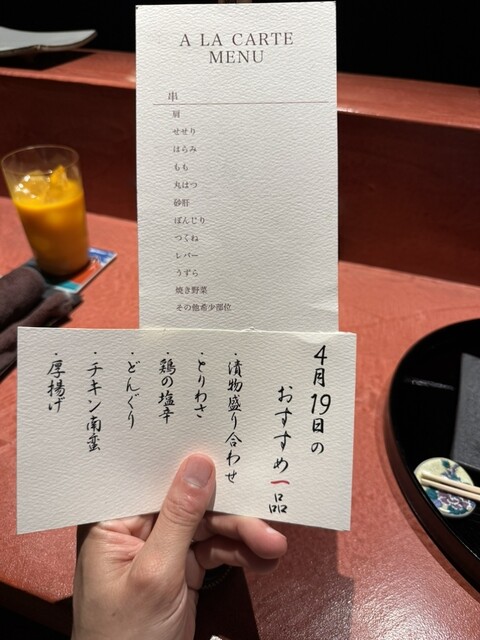 A LA CARTE
MENU
串
肩
せせり
はらみ
もも
丸はつ
砂肝
ぼんじり
つくね
レバー
うずら
焼き野菜
その他希少部位
4月19日の
おすすめ一品
・漬物盛り合わせ
・とりわさ
・鶏の塩辛
・どんぐり
・チキン南蛮
・厚揚げ